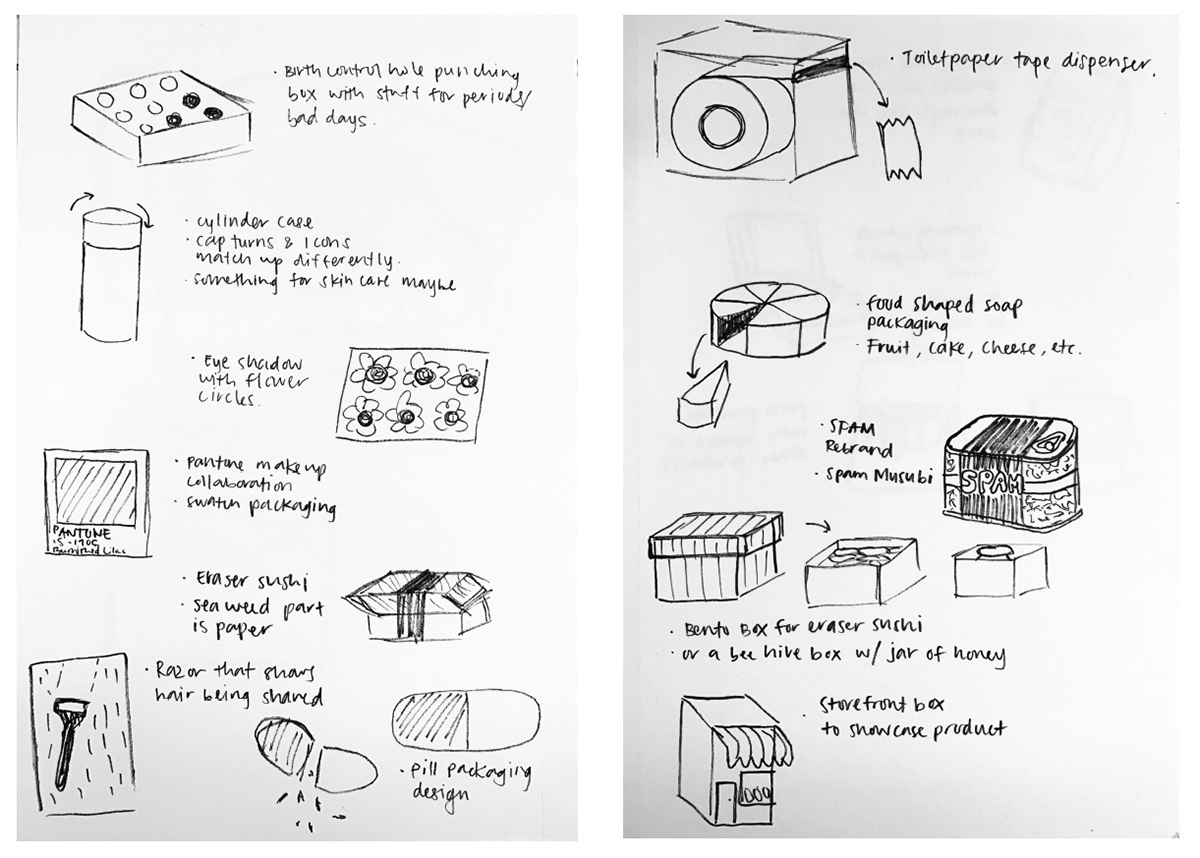 · Birth control hole punching
box with stuff for periods/
bad days.
· cylinder case
· cap turns & icons
match up differently.
· something for skin care maybe
· Eye shadow
with flower
circles.
· Pantone makeup
collaboration
· swatch packaging
PANTONE
15-1905
Burnished Lilac
· Eraser sushi
· sea weed part
is paper
· Razor that shows
hair being shaved
· pill packaging
design
· Toiletpaper tape dispenser.
· food shaped soap
packaging
· Fruit, cake, cheese, etc.
· SPAM
Rebrand
· Spam Musubi
SPAM
· Bento Box for eraser sushi
· or a bee hive box w/ jar of honey
· Storefront box
to showcase product